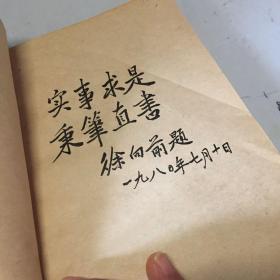 实事求是
秉笔直書
徐向前题
一九八〇年七月十日